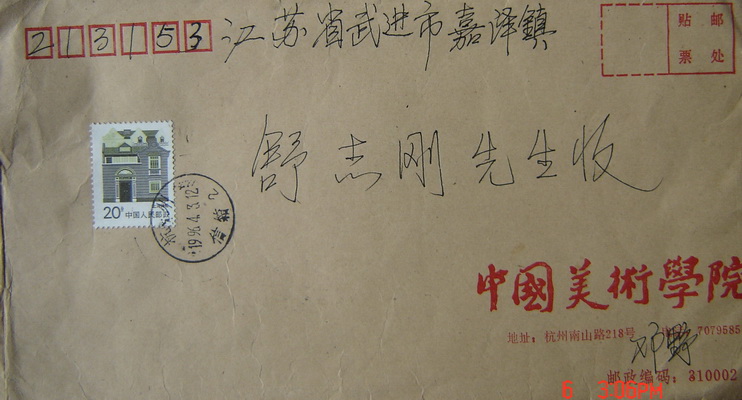 213153 江苏省武进市嘉泽镇
贴 邮
票 处
舒志刚 先生收
20分 中国人民邮政
杭州
1996.4.3.12
中國美術學院
地址：杭州南山路218号 7079585
邓野
邮政编码：310002
6 3:06PM